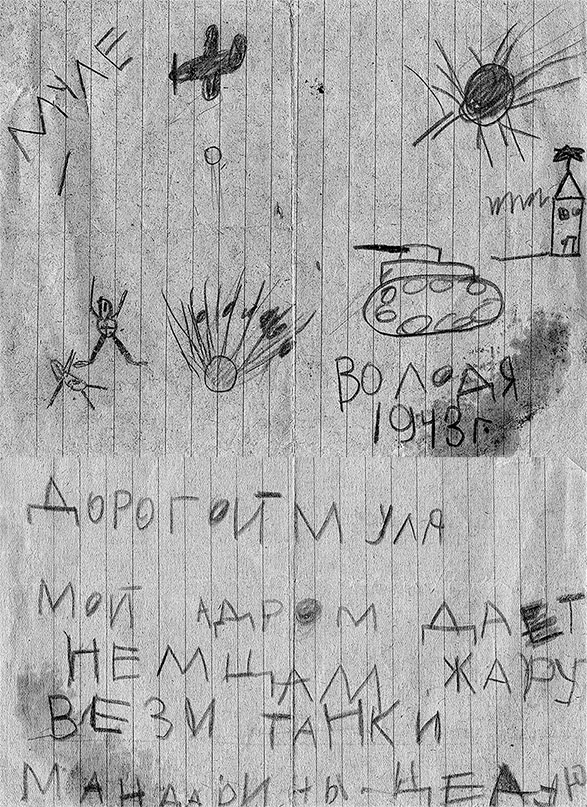 МУЛЕ
ВОЛОДЯ
1943 г.
ДОРОГОЙ МУЛЯ
МОЙ АДРОМ ДАЕТ
НЕМЦАМ ЖАРУ
ВЕЗИ ТАНКИ
МАНДАРИНЫ